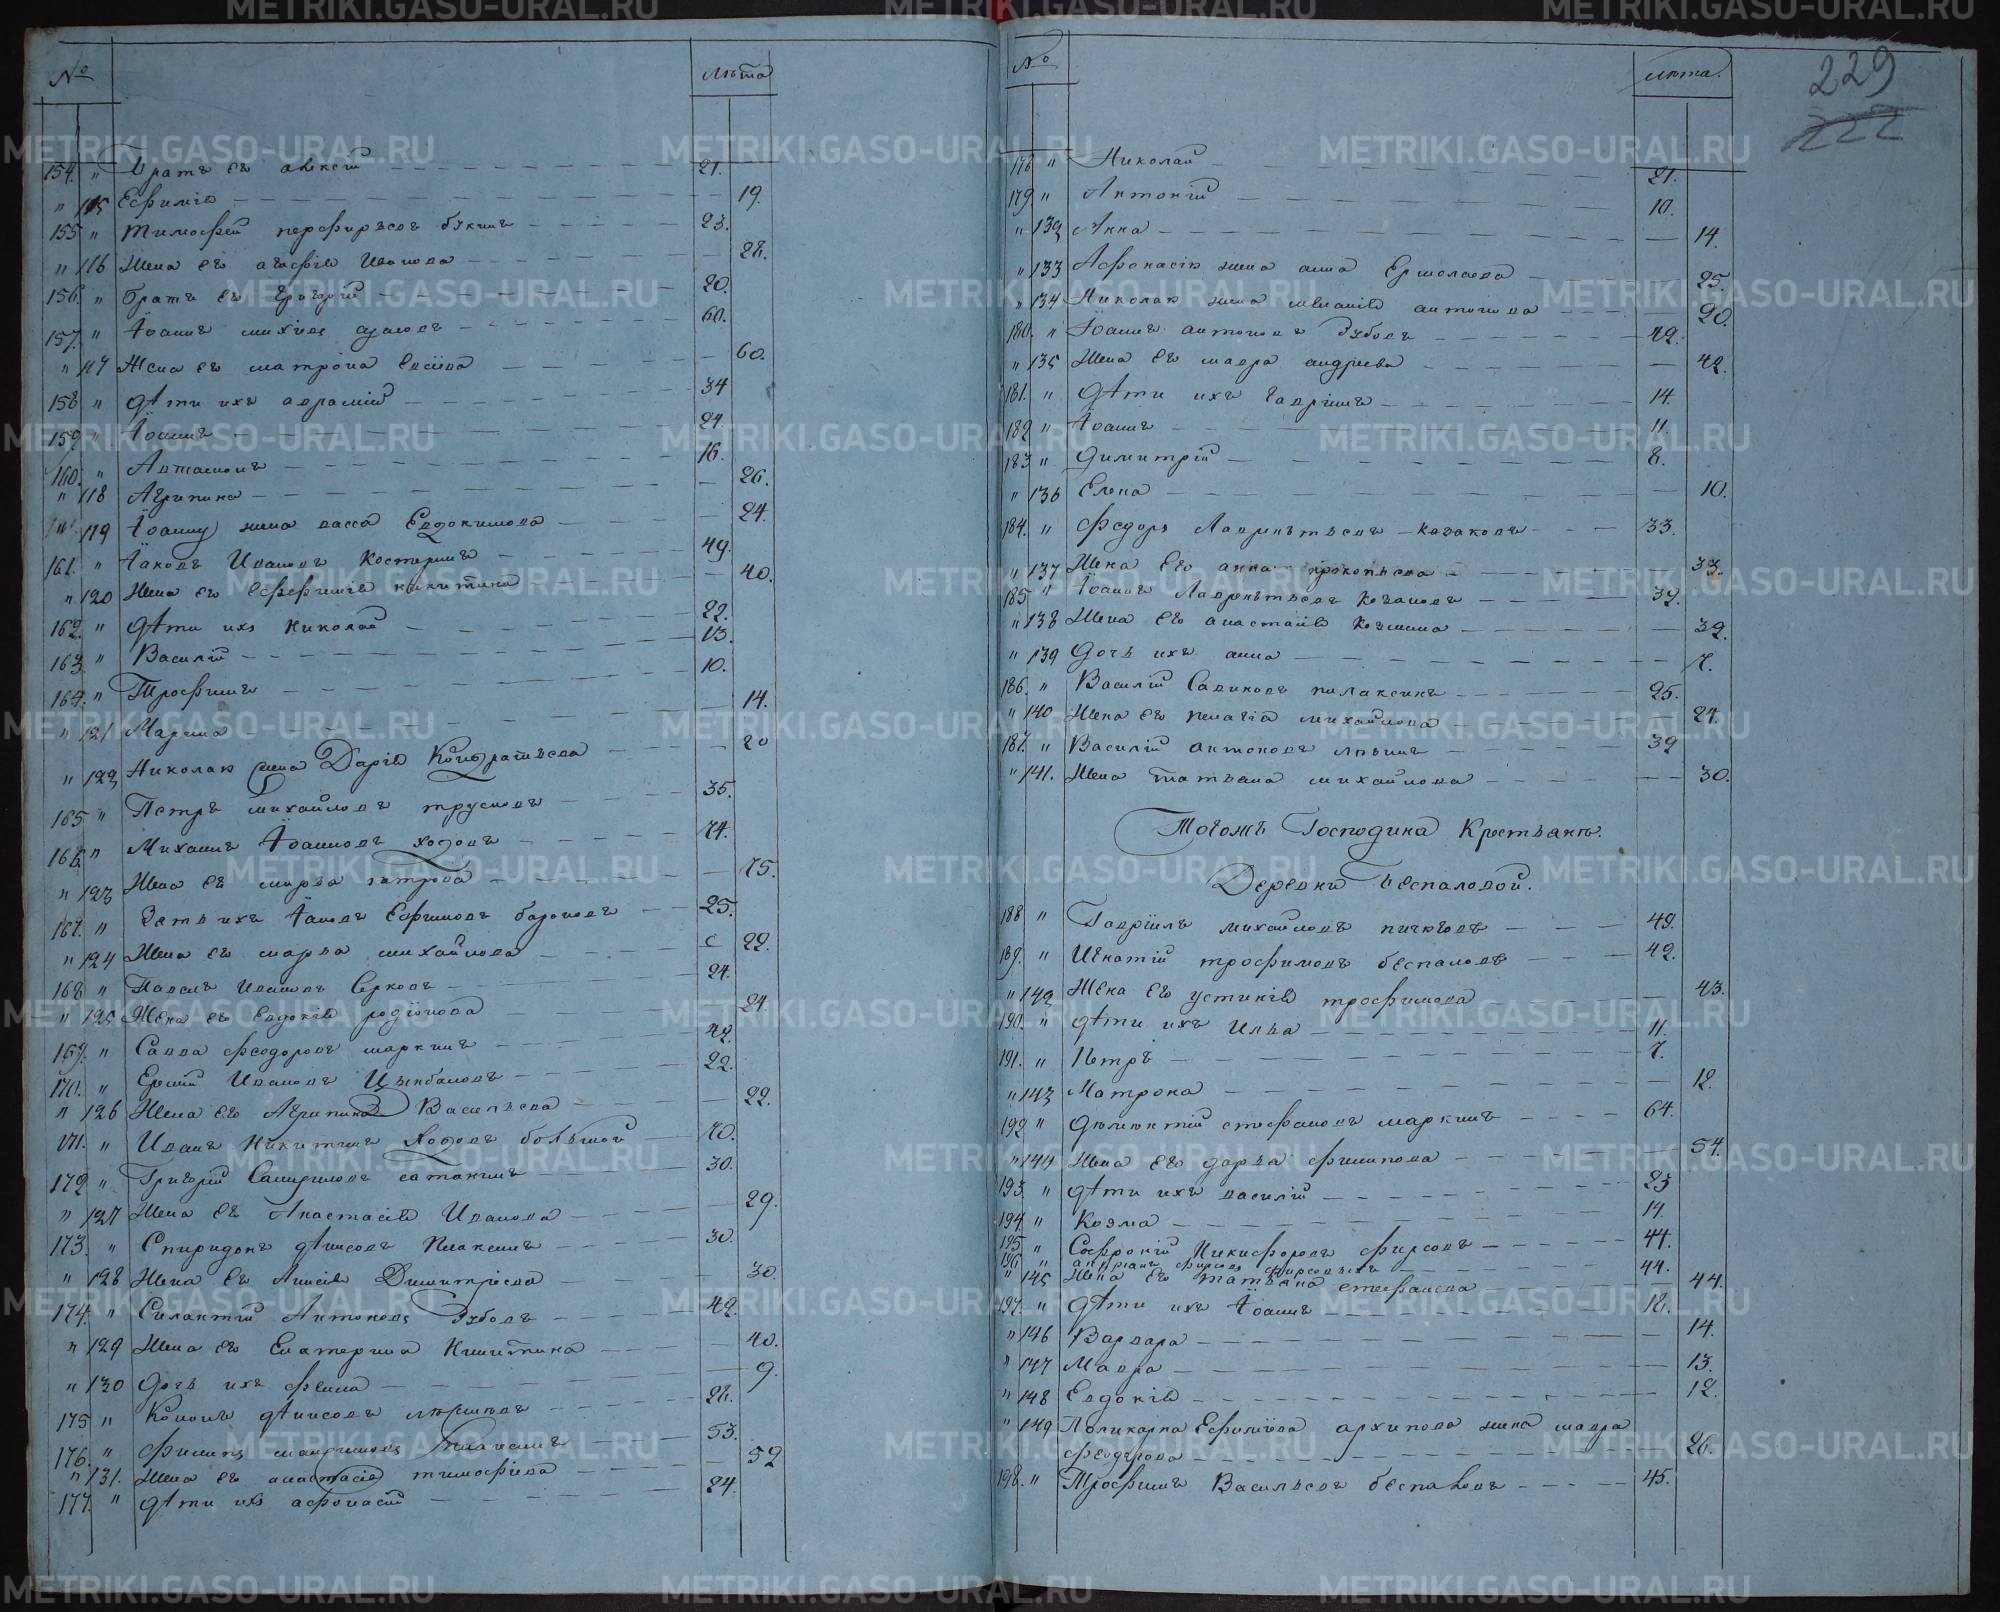 № лѣта
154. " Братъ его алексiй 21.
" 115 Ефимiя 19.
155 " тимофей перфирьевъ букинъ 23.
" 116 жена его агафiя Иванова 28.
156. " братъ его григорiй 20.
157. " Iоаннъ 60.
" 117 Жена его матрона 60.
158 " дѣти ихъ аврамiй 34
159. " Iоаннъ 24.
160. " Автамонъ 16.
" 118 Агрипина 26.
" 119 Iоанну жена васса Евдокимова 24.
161. " Iаковъ Ивановъ Костеринъ 49.
" 120 Жена его Ефимiя никитина 40.
162. " дѣти ихъ николай 22.
163 " Василiй 13.
164. " Трофимъ 10.
" 121 Марина 14.
" 122 Николая жена Дарiя Кондратьева 20
165 " Петръ михайловъ трусковъ 35.
166. " Михаилъ Iоанновъ ходовъ 74.
" 123 Жена его марѳа петрова 75.
167. " Зять ихъ Iаковъ Ефимовъ бароновъ 25.
" 124 Жена его марѳа михайлова 22.
168 " Павелъ Ивановъ Серковъ 24.
" 125 Жена его Евдокiя родiонова 24.
169. " Савва феодоровъ маркинъ 42.
170. " Ивановъ Цынбаловъ 22.
" 126 Жена его Агрипина Васильева 22.
171. " Иванъ Никитинъ Ходовъ большой 70.
172 " Григорiй Самуиловъ сатонинъ 30.
" 127 Жена его Анастасiя Иванова 29.
173. " Спиридонъ дѣнисовъ Плаксинъ 30.
" 128 Жена его Анисiя Димитрiева 30.
174. " Силантiй Антоновъ Зубовъ 42.
" 129 Жена его Екатерина Никитина 40.
" 130 Дочь ихъ фекла 9.
175 " Кононъ дѣнисовъ 28.
176. " Филипъ максимовъ Плаксинъ 53.
" 131. Жена его анастасiя тимофiева 52
177. " дѣти ихъ афонасiй 24.
№ лѣта.
229
222
178 " Николай 21.
179 " Антонiй 10.
" 132 Анна 14.
" 133 Афонасiя жена анна Ермолаева 25.
" 134 Николая жена меланiя антонова 20.
180. " Iоаннъ антоновъ Зубовъ 42.
" 135 Жена его мавра андреева 42.
181. " дѣти ихъ гаврiилъ 14.
182 " Iоаннъ 11.
183 " Димитрiй 8.
" 136 Елена 10.
184. " федоръ Лаврентьевъ казаковъ 33.
" 137 Жена его анна прокопьева 33.
185 " Iоаннъ Лаврентьевъ 32.
" 138 Жена его анастасiя Козмина 32.
" 139 Дочь ихъ анна 7.
186. " Василiй Савиновъ плаксинъ 25.
" 140 Жена его пелагiя михайлова 24.
187. " Василiй антоновъ 32
" 141. Жена татьяна михайлова 30.
Тогожъ Господина Крестьянъ.
Деревни Беспаловой.
188 " Гаврiилъ михайловъ пичюговъ 49.
189. " Игнатiй трофимовъ беспаловъ 42.
" 142 Жена его устинiя трофимова 43.
190. " дѣти ихъ Илья 11.
191. " Петръ 7.
" 143 Матрона 12.
192 " стефановъ маркинъ 64.
" 144 Жена его дарья филипова 54.
193. " дѣти ихъ василiй 23
194 " Козма 17.
195 " Софронiй Никифоровъ фирсовъ 44.
196 " 44.
" 145 Жена его татьяна стефанова 44.
197. " дѣти ихъ Iоаннъ 18.
" 146 Варвара 14.
" 147 Мавра 13.
" 148 Евдокiя 12.
" 149 Поликарпа Ефимова архипова жена мавра
феодорова 26.
198. " Трофимъ Васильевъ беспаловъ 45.
METRIKI.GASO-URAL.RU